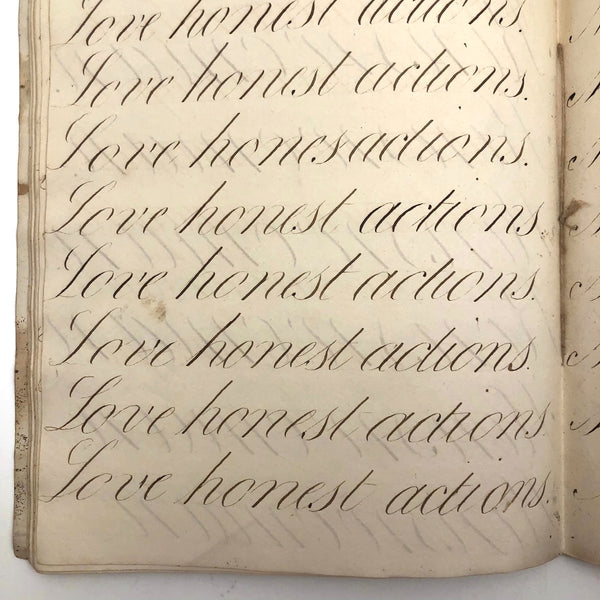 Love honest actions.
Love honest actions.
Love hones actions.
Love honest actions.
Love honest actions.
Love honest actions.
Love honest actions.
Love honest actions.